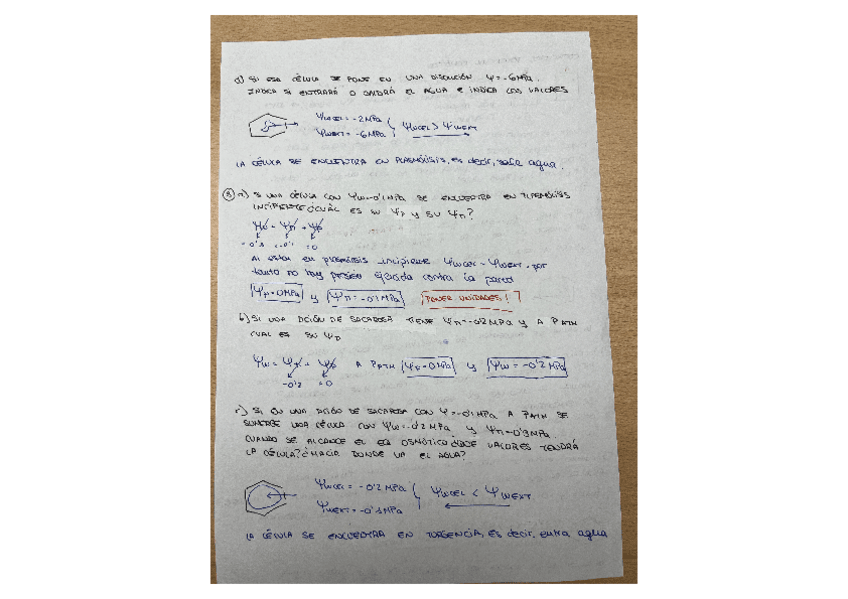 d) SI ESA CÉLULA SE PONE EN UNA DISOLUCIÓN Ψ=-6MPa.
INDICA SI ENTRARÁ O SALDRÁ EL AGUA E INDICA LOS VALORES
ΨWCEL = -2MPa
ΨWEXT = -6MPa
ΨWCEL > ΨWEXT
LA CÉLULA SE ENCUENTRA EN PLASMÓLISIS, ES decir, sale agua.
③ a) SI UNA CÉLULA CON ΨW=-0'1MPa SE ENCUENTRA EN
INCIPIENTE ¿CUÁL ES SU Ψp y SU Ψπ?
ΨW = Ψπ + Ψp
-0'1 =0
Al estar en plasmólisis incipiente ΨWCEL = ΨWEXT, por
tanto no hay presión ejercida contra la pared
Ψp=0MPa y Ψπ=-0'1MPa ¡PONER UNIDADES!
b) SI UNA DCIÓN DE SACAROSA TIENE Ψπ=-0'2MPa y A PATM
CUAL ES SU Ψp
ΨW = Ψπ + Ψp A PATM Ψp=0MPa y ΨW = -0'2MPa
-0'2 =0
c) SI EN UNA DCIÓN DE SACAROSA CON Ψ=-0'1MPa A PATM SE
SUMERGE UNA CÉLULA CON ΨW=-0'2MPa y Ψπ=-0'3MPa.
CUANDO SE ALCANCE EL EQ OSMÓTICO ¿QUÉ VALORES TENDRÁ
LA CÉLULA? ¿HACIA DONDE VA EL AGUA?
ΨWCEL = -0'2MPa
ΨWEXT = -0'1MPa
ΨWCEL < ΨWEXT
LA CÉLULA SE ENCUENTRA EN TURGENCIA, ES decir, entra agua